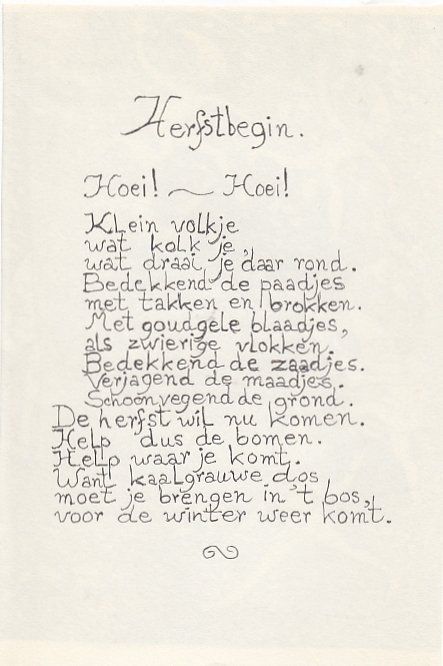 Herfstbegin.
Hoei! ~ Hoei!
Klein volkje
wat kolk je,
wat draai je daar rond.
Bedekkend de paadjes
met takken en brokken.
Met goudgele blaadjes,
als zwierige vlokken.
Bedekkend de zaadjes.
Verjagend de maadjes.
Schoonvegend de grond.
De herfst wil nu komen.
Help dus de bomen.
Help waar je komt.
Want kaalgrauwe dos
moet je brengen in 't bos,
voor de winter weer komt.